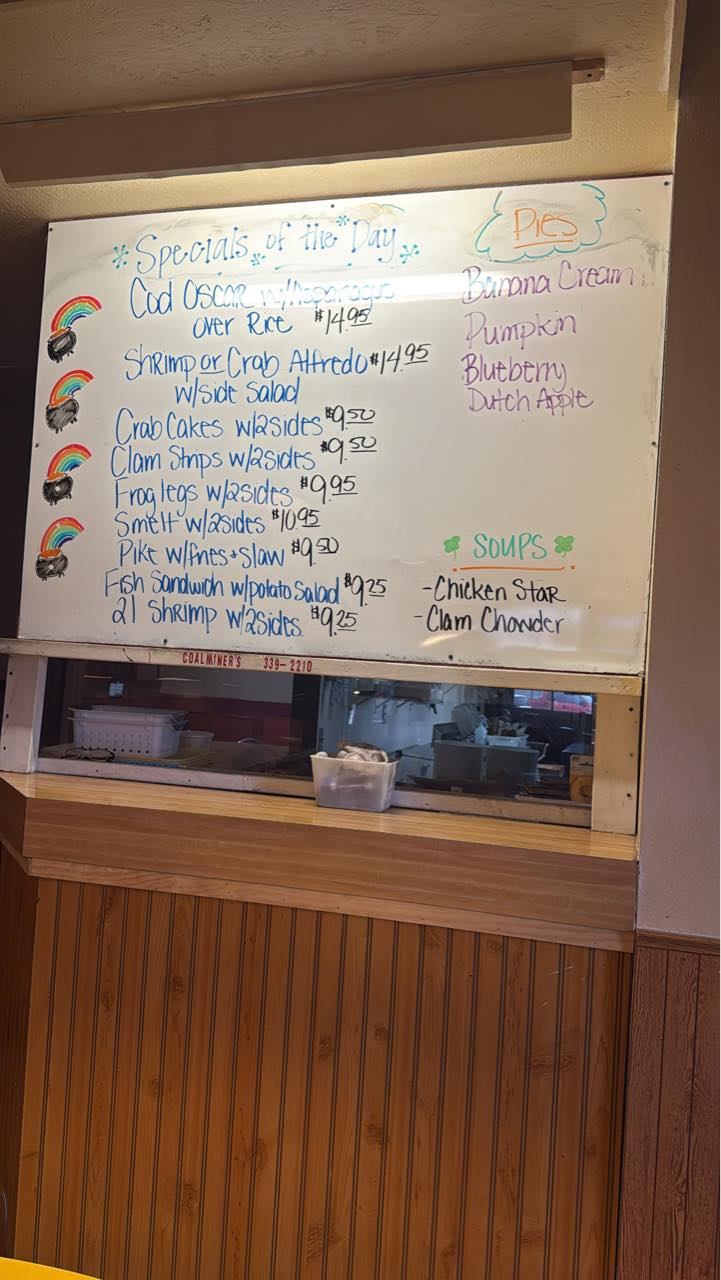 *Specials* of the* Day*
Cod Oscar w/Asparagus
over Rice $14.95
Shrimp or Crab Alfredo $14.95
w/side salad
Crab Cakes w/2sides $9.50
Clam Strips w/2sides $9.50
Frog legs w/2sides $9.95
Smelt w/2sides $10.95
Pike w/fries+slaw $9.50
Fish Sandwich w/potato Salad $9.25
21 Shrimp w/2sides $9.25
Pies
Banana Cream
Pumpkin
Blueberry
Dutch Apple
SOUPS
-Chicken Star
-Clam Chowder
COALMINER'S 339-2210